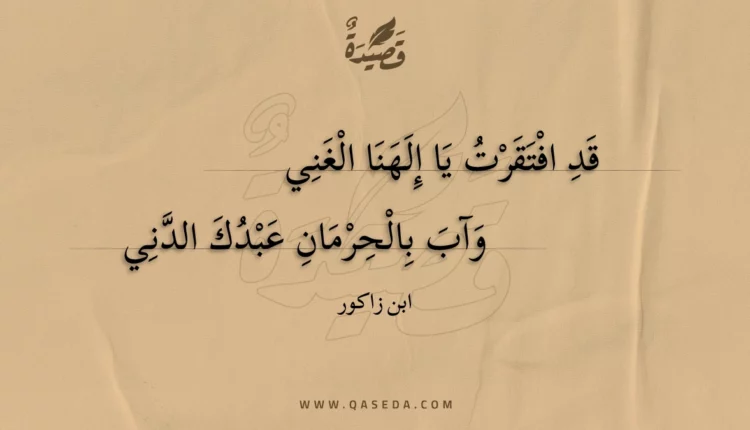 قَصِيدَةٌ
قَدِ افْتَقَرْتُ يَا إِلَهَنَا الْغَنِي
وَآبَ بِالْحِرْمَانِ عَبْدُكَ الدَّنِي
ابن زاكور
WWW.QASEDA.COM